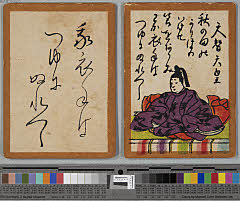 天智天皇
秋の田の
かりほの
いほの
とまをあらみ
我衣手は
つゆにぬれつゝ
我衣手は
つゆに
ぬれつゝ